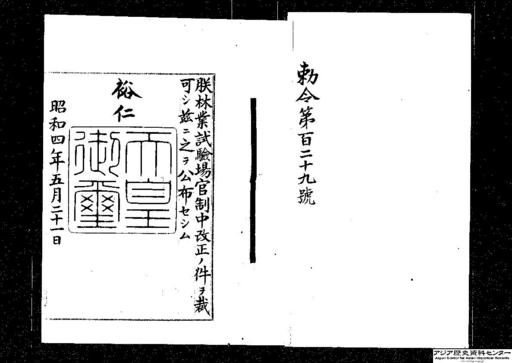 勅令第百二十九號
朕林業試驗場官制中改正ノ件ヲ裁
可シ茲ニ之ヲ公布セシム
裕仁
天皇
御璽
昭和四年五月二十一日
アジア歴史資料センター
Japan Center for Asian Historical Records